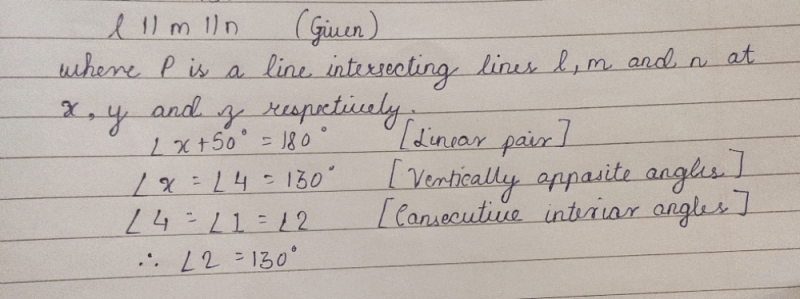 l || m || n (Given)
where P is a line intersecting lines l, m and n at
x, y and z respectively.
∠x + 50° = 180° [Linear pair]
∠x = ∠4 = 130° [Vertically appasite angles]
∠4 = ∠1 = ∠2 [Cansecutive interiar angles]
∴ ∠2 = 130°